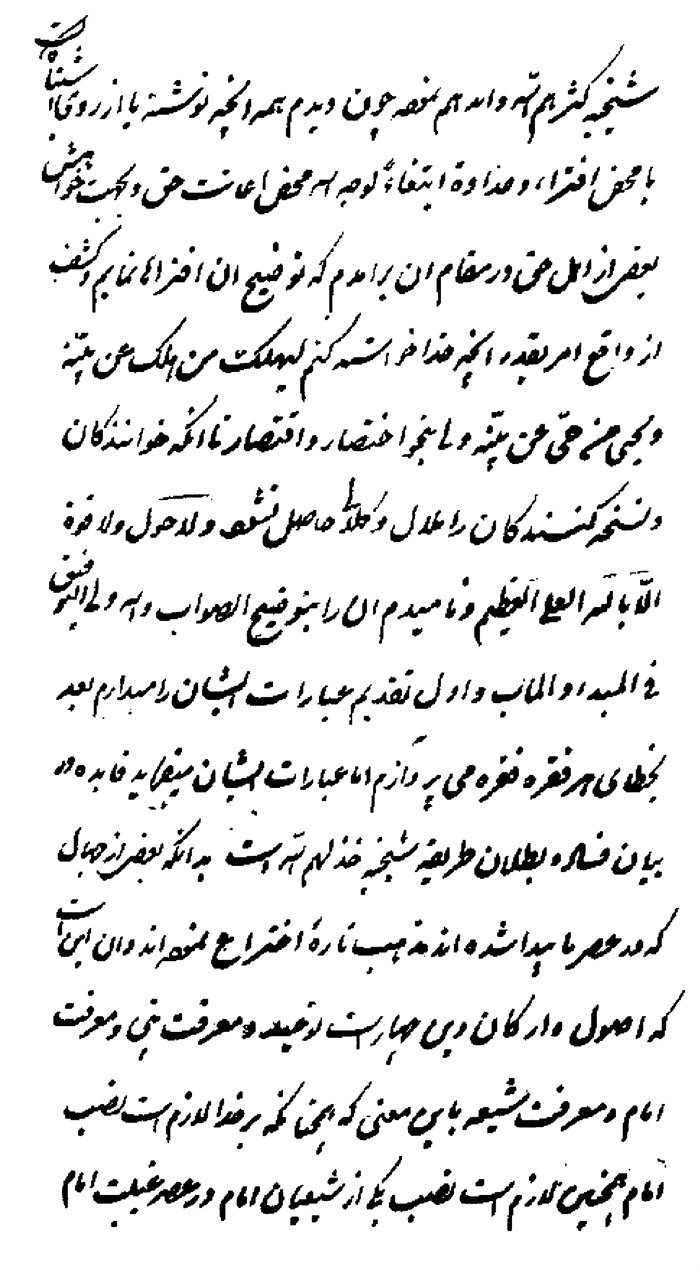 شیخیه کثرهم الله و ایدهم نموده چون دیدم همه آنچه نوشته یا از روی اشتباه است
یا محض افتراء و عداوة ابتغاءً لوجه الله محض اعانت حق و بجهت خواهش
بعض از اهل حق در مقام ان برامدم که توضیح ان افتراها نمایم و کشف
از واقع امر بقدر آنچه خدا خواسته کنم لیهلک من هلک عن بیّنة
و یحیی من حیّ عن بیّنة ولی بنحو اختصار و اقتصار تا آنکه خوانندگان
و نسخه کنندگان را ملال و کلال حاصل نشود و لا حول ولا قوة
الّا بالله العلی العظیم و نامیدم ان را بتوضیح الصواب والله ولی التوفیق
فی المبدء و المآب و اول تقدیم عبارات ایشان را میدارم بعد
بخطای هر فقره فقره می پردازم اما عبارات ایشان میفرماید فایده در
بیان فساد و بطلان طریقه شیخیه خذلهم الله است بدانکه بعض از جهال
که در عصر ما پیدا شده اند مذهب تازهٔ اختراع نموده اند و ان این است
که اصول و ارکان دین چهار است توحید و معرفت نبی و معرفت
امام و معرفت شیعه باین معنی که همچنانکه بر خدا لازم است نصب
امام همچنین لازم است نصب یکی از شیعیان امام در عصر غیبت امام